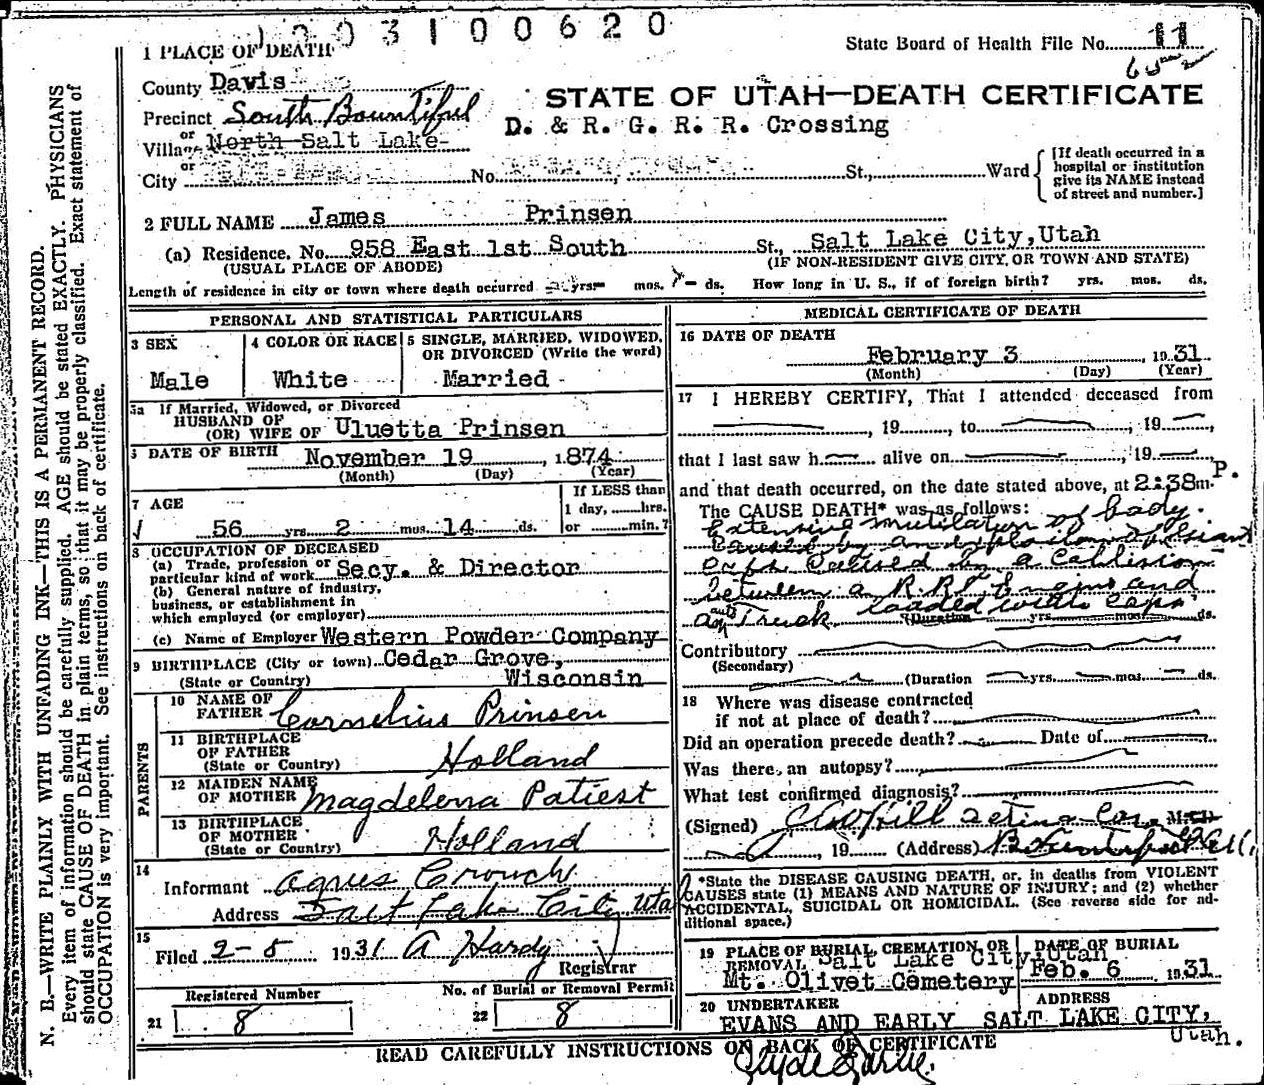 1003100620
1 PLACE OF DEATH
State Board of Health File No. 11
County Davis
STATE OF UTAH—DEATH CERTIFICATE
Precinct South Bountiful
D. & R. G. R. R. Crossing
or
Village North Salt Lake
or
City No. St., Ward
[If death occurred in a
hospital or institution
give its NAME instead
of street and number.]
2 FULL NAME James Prinsen
(a) Residence. No. 958 East 1st South St., Salt Lake City, Utah
(USUAL PLACE OF ABODE) (IF NON-RESIDENT GIVE CITY, OR TOWN AND STATE)
Length of residence in city or town where death occurred yrs. mos. ds. How long in U. S., if of foreign birth? yrs. mos. ds.
PERSONAL AND STATISTICAL PARTICULARS
3 SEX
Male
4 COLOR OR RACE
White
5 SINGLE, MARRIED, WIDOWED,
OR DIVORCED (Write the word)
Married
5a If Married, Widowed, or Divorced
HUSBAND OF
(OR) WIFE OF Uluetta Prinsen
6 DATE OF BIRTH November 19, 1874
(Month) (Day) (Year)
7 AGE
56 yrs. 2 mos. 14 ds.
If LESS than
1 day, hrs.
or min.?
8 OCCUPATION OF DECEASED
(a) Trade, profession or
particular kind of work Secy. & Director
(b) General nature of industry,
business, or establishment in
which employed (or employer)
(c) Name of Employer Western Powder Company
9 BIRTHPLACE (City or town) Cedar Grove,
(State or Country) Wisconsin
PARENTS
10 NAME OF
FATHER Cornelius Prinsen
11 BIRTHPLACE
OF FATHER
(State or Country) Holland
12 MAIDEN NAME
OF MOTHER Magdelena Patiest
13 BIRTHPLACE
OF MOTHER
(State or Country) Holland
14
Informant Agnes Crouch
Address Salt Lake City Utah
15
Filed 2-5 1931 A Hardy
Registrar
Registered Number
21 8
No. of Burial or Removal Permit
22 8
MEDICAL CERTIFICATE OF DEATH
16 DATE OF DEATH
February 3, 1931
(Month) (Day) (Year)
17 I HEREBY CERTIFY, That I attended deceased from
, 19 , to , 19 ,
that I last saw h alive on , 19 ,
and that death occurred, on the date stated above, at 2:38 P. m.
The CAUSE DEATH* was as follows:
Extensive mutilation of body.
Caused by an explosion of Giant
caps Caused by a Collision
between a R.R. Engine and
an auto Truck loaded with caps.
(Duration yrs. mos. ds.
Contributory
(Secondary)
(Duration yrs. mos. ds.
18 Where was disease contracted
if not at place of death?
Did an operation precede death? Date of
Was there an autopsy?
What test confirmed diagnosis?
(Signed) M.D.
, 19 (Address) Bountiful
*State the DISEASE CAUSING DEATH, or, in deaths from VIOLENT
CAUSES state (1) MEANS AND NATURE OF INJURY; and (2) whether
ACCIDENTAL, SUICIDAL OR HOMICIDAL. (See reverse side for ad-
ditional space.)
19 PLACE OF BURIAL CREMATION OR
REMOVAL Salt Lake City, Utah
Mt. Olivet Cemetery
DATE OF BURIAL
Feb. 6 1931
20 UNDERTAKER ADDRESS
EVANS AND EARLY SALT LAKE CITY,
Utah.
READ CAREFULLY INSTRUCTIONS ON BACK OF CERTIFICATE
N. B.—WRITE PLAINLY WITH UNFADING INK—THIS IS A PERMANENT RECORD.
Every item of information should be carefully supplied. AGE should be stated EXACTLY. PHYSICIANS
should state CAUSE OF DEATH in plain terms, so that it may be properly classified. Exact statement of
OCCUPATION is very important. See instructions on back of certificate.